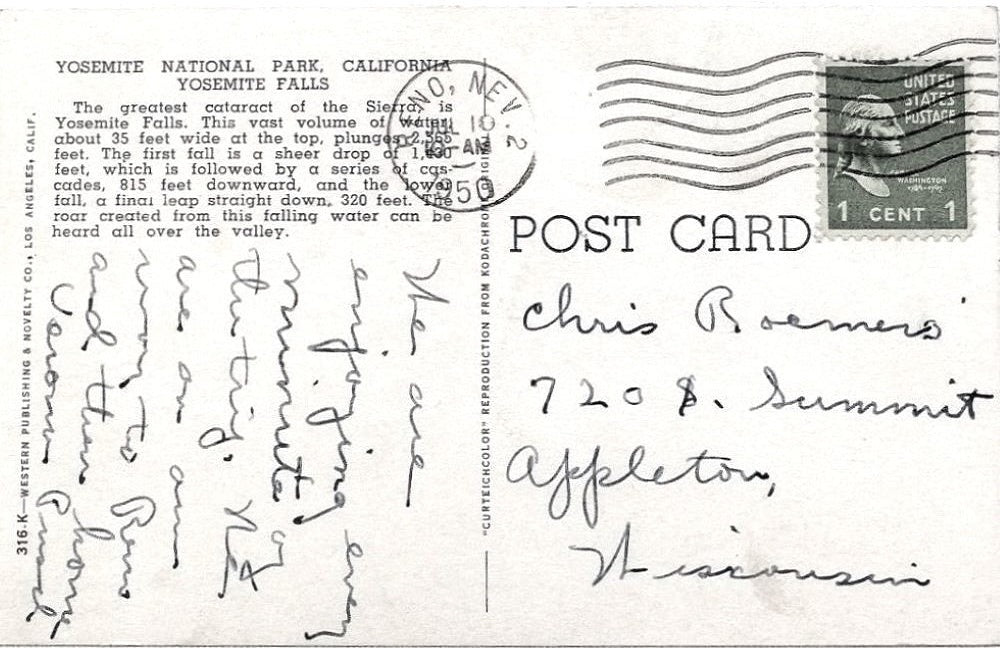 YOSEMITE NATIONAL PARK, CALIFORNIA
YOSEMITE FALLS
The greatest cataract of the Sierra, is
Yosemite Falls. This vast volume of water,
about 35 feet wide at the top, plunges 2,565
feet. The first fall is a sheer drop of 1,430
feet, which is followed by a series of cas-
cades, 815 feet downward, and the lower
fall, a final leap straight down, 320 feet. The
roar created from this falling water can be
heard all over the valley.
316-K—WESTERN PUBLISHING & NOVELTY CO., LOS ANGELES, CALIF.
We are
enjoying every
minute of
the trip. We
are on our
way to Reno
and then home
Verona
"CURTEICHCOLOR" REPRODUCTION FROM KODACHROME ORIGINAL
RENO, NEV. 2
JUL 10
AM
1950
UNITED
STATES
POSTAGE
WASHINGTON
1 CENT 1
POST CARD
Chris Roemers
720 S. Summit
Appleton,
Wisconsin